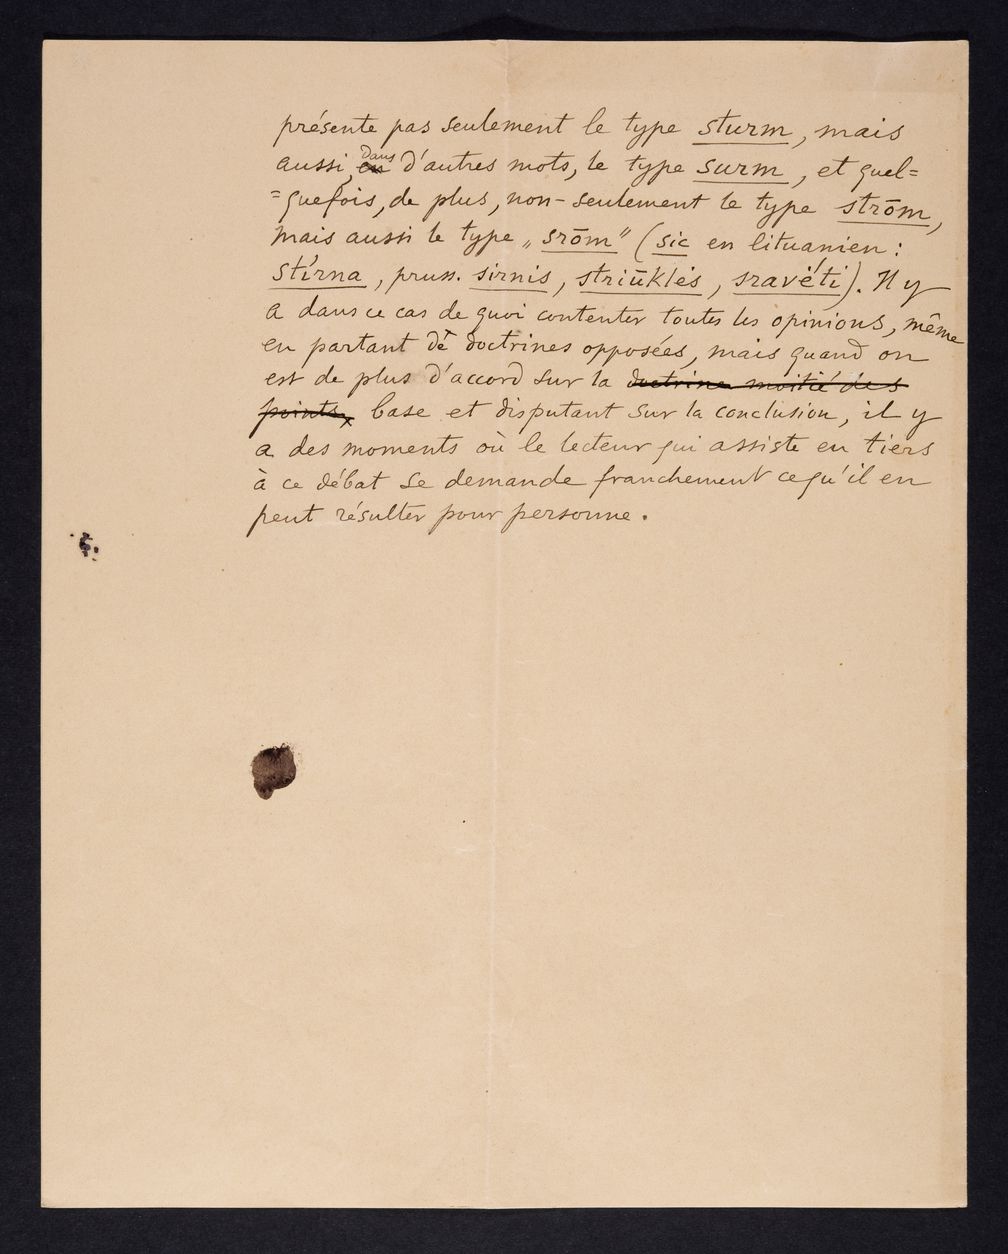 présente pas seulement le type sturm, mais
aussi, en dans d'autres mots, le type surm, et quel=
=quefois, de plus, non-seulement le type strōm,
mais aussi le type „srōm" (sic en lituanien :
stírna, pruss. sirnis, striūklės, sravė́ti). Il y
a dans ce cas de quoi contenter toutes les opinions, même
en partant de doctrines opposées, mais quand on
est de plus d'accord sur la doctrine moitié des
points, base et disputant sur la conclusion, il y
a des moments où le lecteur qui assiste en tiers
à ce débat se demande franchement ce qu'il en
peut résulter pour personne.